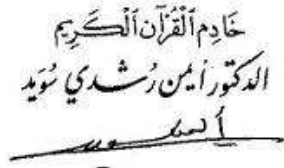 خَادِمِ ٱلْقُرْآنِ ٱلْكَرِيمِ
الدكتور أيمن رُشدي سُوَيد